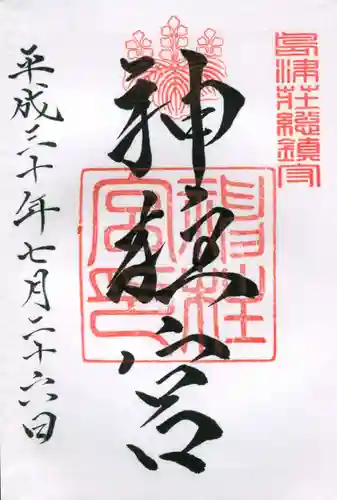 島津荘総鎮守
神柱宮
平成三十年七月二十六日